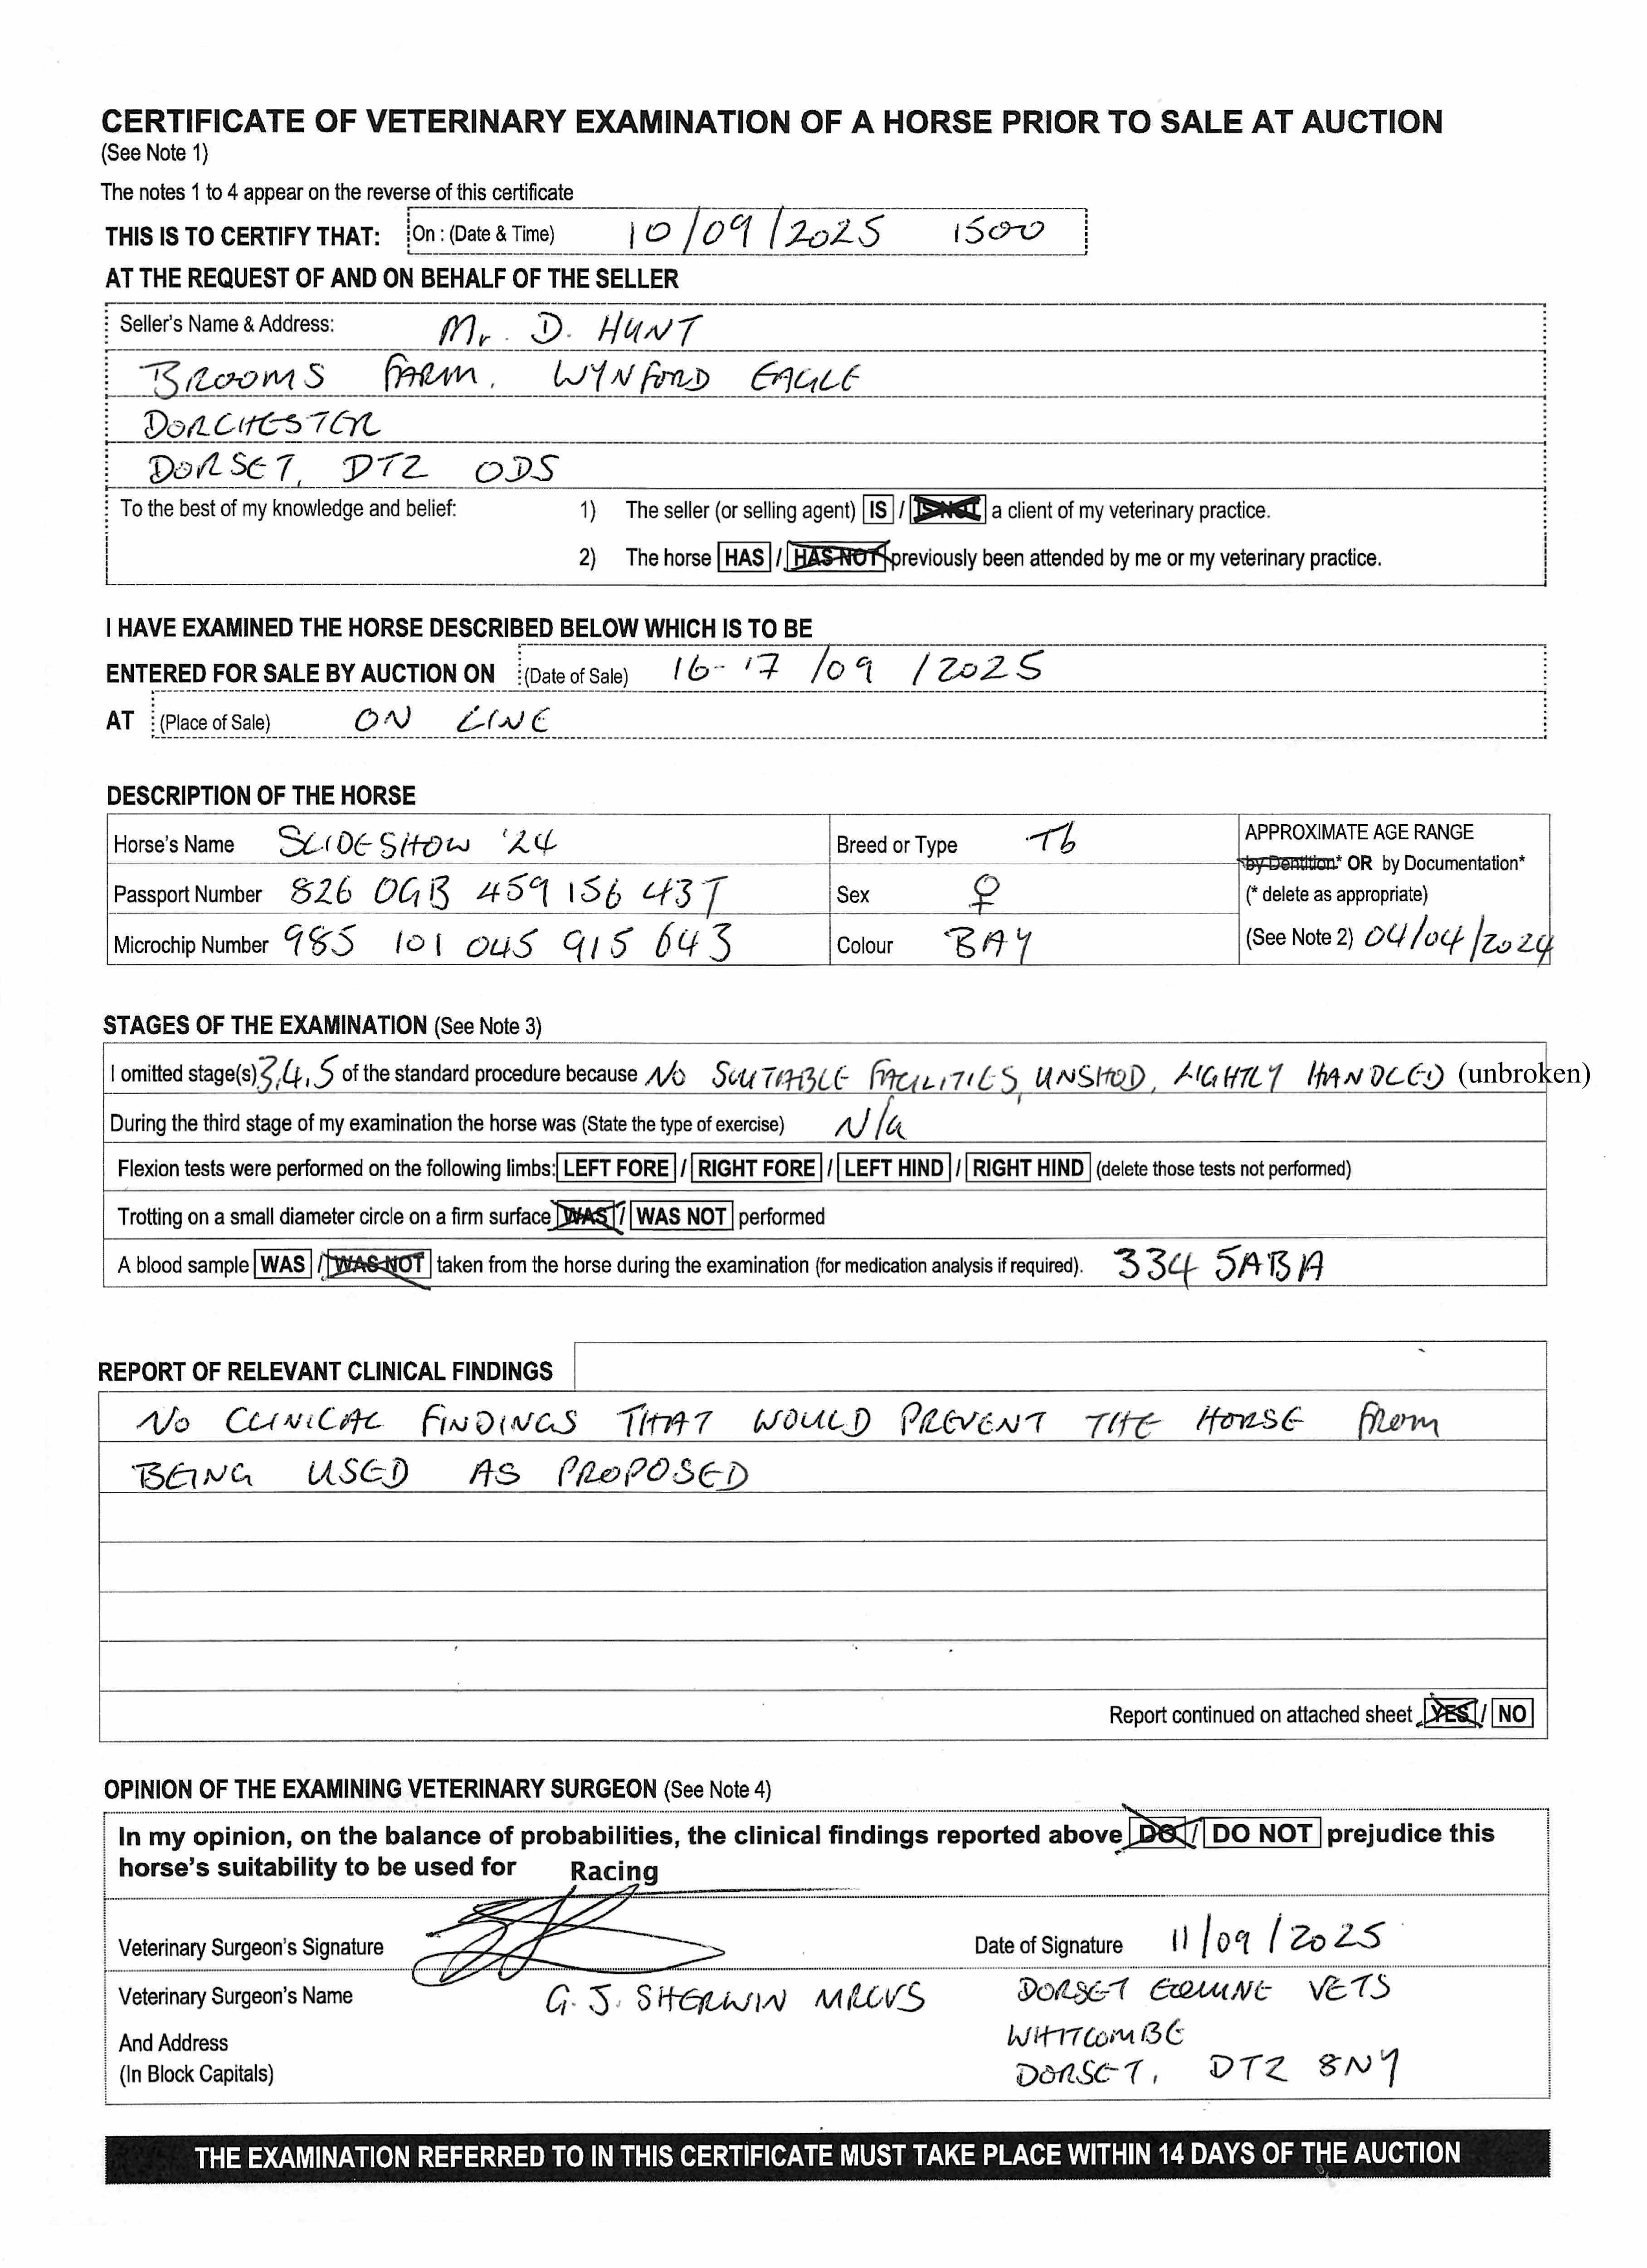 CERTIFICATE OF VETERINARY EXAMINATION OF A HORSE PRIOR TO SALE AT AUCTION
(See Note 1)
The notes 1 to 4 appear on the reverse of this certificate
THIS IS TO CERTIFY THAT: On : (Date & Time) 10/09/2025 1500
AT THE REQUEST OF AND ON BEHALF OF THE SELLER
Seller's Name & Address: Mr. D. HUNT
BROOMS FARM, WYNFORD EAGLE
DORCHESTER
DORSET, DT2 0DS
To the best of my knowledge and belief: 1) The seller (or selling agent) IS / IS NOT a client of my veterinary practice.
2) The horse HAS / HAS NOT previously been attended by me or my veterinary practice.
I HAVE EXAMINED THE HORSE DESCRIBED BELOW WHICH IS TO BE
ENTERED FOR SALE BY AUCTION ON (Date of Sale) 16-17 /09 /2025
AT (Place of Sale) ON LINE
DESCRIPTION OF THE HORSE
Horse's Name SLIDESHOW '24 Breed or Type Tb APPROXIMATE AGE RANGE
by Dentition* OR by Documentation*
Passport Number 826 0GB 459 156 43T Sex ♀ (* delete as appropriate)
Microchip Number 985 101 045 915 643 Colour BAY (See Note 2) 04/04/2024
STAGES OF THE EXAMINATION (See Note 3)
I omitted stage(s) 3,4,5 of the standard procedure because NO SUITABLE FACILITIES, UNSHOD, LIGHTLY HANDLED (unbroken)
During the third stage of my examination the horse was (State the type of exercise) N/a
Flexion tests were performed on the following limbs: LEFT FORE / RIGHT FORE / LEFT HIND / RIGHT HIND (delete those tests not performed)
Trotting on a small diameter circle on a firm surface WAS / WAS NOT performed
A blood sample WAS / WAS NOT taken from the horse during the examination (for medication analysis if required). 334 5ABA
REPORT OF RELEVANT CLINICAL FINDINGS
NO CLINICAL FINDINGS THAT WOULD PREVENT THE HORSE FROM
BEING USED AS PROPOSED
Report continued on attached sheet YES / NO
OPINION OF THE EXAMINING VETERINARY SURGEON (See Note 4)
In my opinion, on the balance of probabilities, the clinical findings reported above DO / DO NOT prejudice this
horse's suitability to be used for Racing
Veterinary Surgeon's Signature Date of Signature 11/09/2025
Veterinary Surgeon's Name G. J. SHERWIN MRCVS DORSET EQUINE VETS
And Address WHITCOMBE
(In Block Capitals) DORSET, DT2 8NY
THE EXAMINATION REFERRED TO IN THIS CERTIFICATE MUST TAKE PLACE WITHIN 14 DAYS OF THE AUCTION